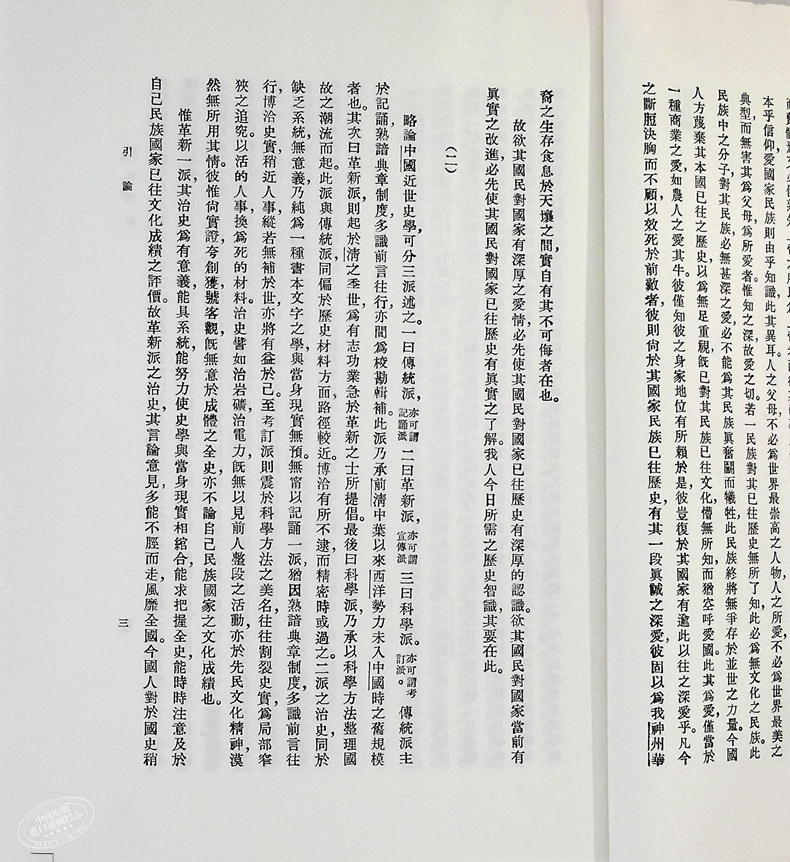 本乎信仰，愛國家民族則由乎知識，此其異耳。人之父母，不必爲世界最崇高之人物，人之所愛，不必爲世界最美之
典型，而無害其爲父母，爲所愛者。惟知之深，故愛之切。若一民族對其已往歷史無所了知，此必爲無文化之民族。此
民族中之分子，對其民族，必無甚深之愛，必不能爲其民族眞奮鬭而犧牲，此民族終將無爭存於並世之力量。今國
人方蔑棄其本國已往之歷史，以爲無足重視；既已對其民族已往文化，懵無所知，而猶空呼愛國。此其爲愛，僅當於
一種商業之愛，如農人之愛其牛。彼僅知彼之身家地位有所賴於是，彼豈復於其國家有逾此以往之深愛乎。凡今
之斷脰決胸而不顧，以效死於前敵者，彼則尙於其國家民族已往歷史，有其一段眞誠之深愛，彼固以爲我神州華
裔之生存食息於天壤之間，實自有其不可侮者在也。
故欲其國民對國家有深厚之愛情，必先使其國民對國家已往歷史有深厚的認識。欲其國民對國家當前有
眞實之改進，必先使其國民對國家已往歷史有眞實之了解。我人今日所需之歷史智識，其要在此。
（二）
略論中國近世史學，可分三派述之。一曰傳統派，亦可謂記誦派 二曰革新派，亦可謂宣傳派 三曰科學派。亦可謂考訂派。 傳統派主
於記誦，熟諳典章制度，多識前言往行，亦間爲校勘輯補。此派乃承前淸中葉以來西洋勢力未入中國時之舊規模
者也。其次曰革新派，則起於淸之季世，爲有志功業急於革新之士所提倡。最後曰科學派，乃承以科學方法整理國
故之潮流而起。此派與傳統派，同偏於歷史材料方面，路徑較近。博洽有所不逮，而精密時或過之。二派之治史，同於
缺乏系統，無意義，乃純爲一種書本文字之學，與當身現實無預。無甯以記誦一派，猶因熟諳典章制度，多識前言往
行，博洽史實，稍近人事；縱若無補於世，亦將有益於己。至考訂派則震於科學方法之美名，往往割裂史實，爲局部窄
狹之追究。以活的人事，換爲死的材料。治史譬如治岩礦，治電力，旣無以見前人整段之活動，亦於先民文化精神，漠
然無所用其情。彼惟尙實證，夸創獲，號客觀，旣無意於成體之全史，亦不論自己民族國家之文化成績也。
惟革新一派，其治史爲有意義，能具系統，能努力使史學與當身現實相綰合，能求把握全史，能時時注意及於
自己民族國家已往文化成績之評價。故革新派之治史，其言論意見，多能不脛而走，風靡全國。今國人對於國史稍
引 論
三